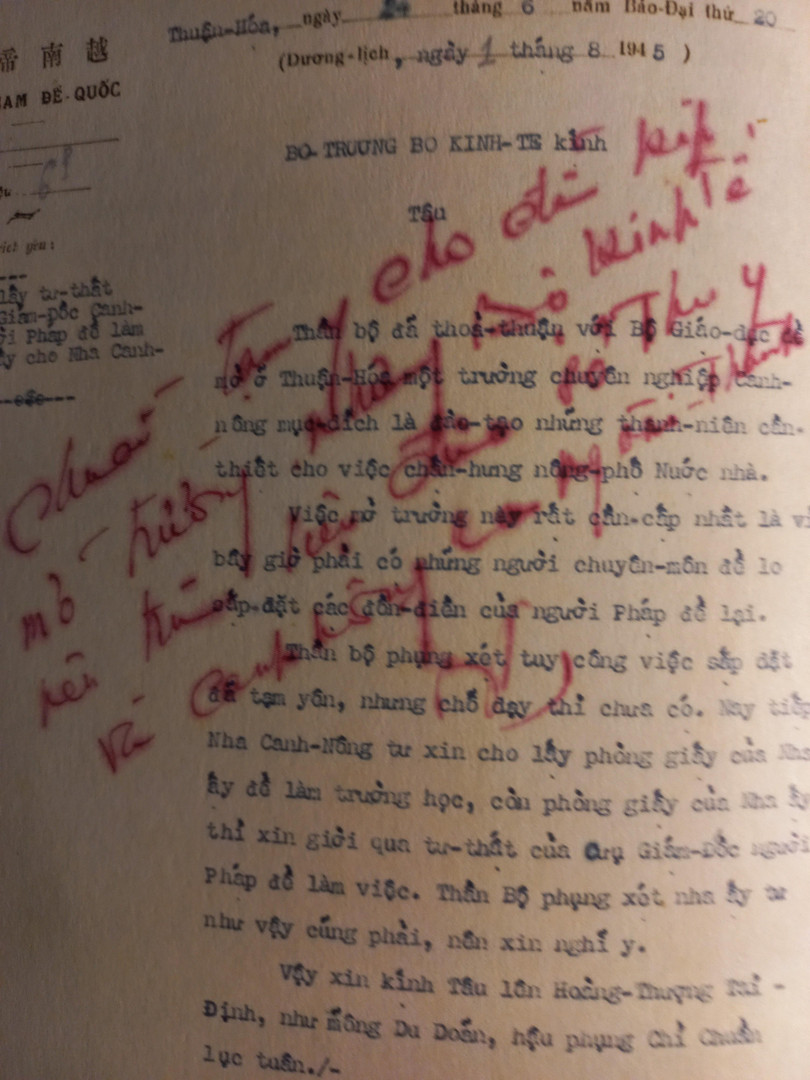 Thuận-Hóa, ngày 24 tháng 6 năm Bảo-Đại thứ 20
(Dương-lịch, ngày 1 tháng 8 1945 )
帝 南 越
AM ĐẾ-QUỐC
BO-TRUONG BO KINH-TE kính
Tâu
trích yếu :
lấy tư-thất
Giám-đốc Canh-
Pháp để làm
cho Nha Canh-
Chuẩn tạm y cho
mở trường nhưng Bộ Kinh Tế
nên Thú Y
và Canh nông ngoài Thành
Thần bộ đã thoả-thuận với Bộ Giáo-dục để
mở ở Thuận-Hóa một trường chuyên nghiệp Canh-
nông mục-đích là đào-tạo những thanh-niên cần-
thiết cho việc chấn-hưng nông-phố Nước nhà.
Việc mở trường này rất cần-cấp nhất là vì
bấy giờ phải có những người chuyên-môn để lo
sắp-đặt các đồn-điền của người Pháp để lại.
Thần bộ phụng xét tuy công việc sắp đặt
đã tạm yên, nhưng chỗ dạy thì chưa có. Nay tiếp
Nha Canh-Nông tư xin cho lấy phòng giấy của Nha
ấy để làm trường học, còn phòng giấy của Nha ấy
thì xin giời qua tư-thất của cựu Giám-Đốc người
Pháp để làm việc. Thần Bộ phụng xét nha ấy tư
như vậy cũng phải, nên xin nghĩ y.
Vậy xin kính Tâu lên Hoàng-Thượng Tài -
Định, như mông Du Doãn, hậu phụng Chỉ Chuẩn
lục tuân./-